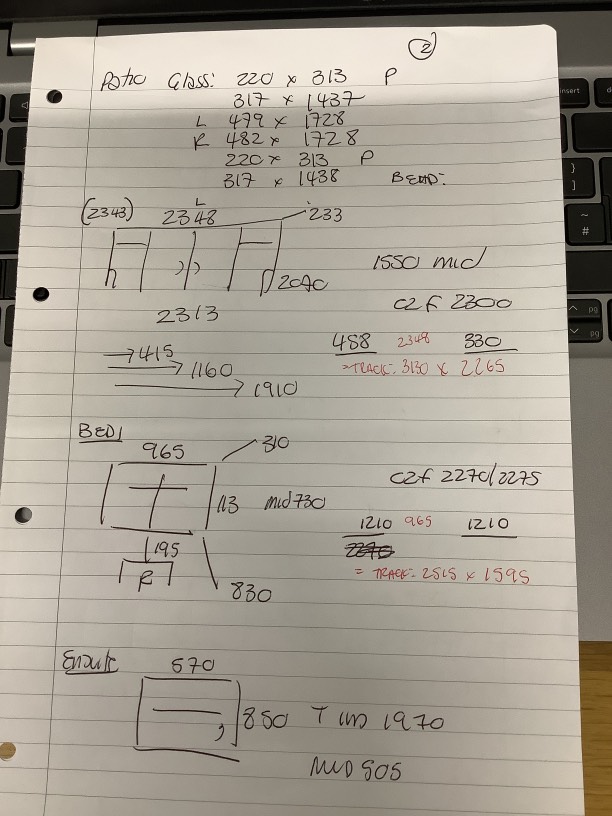 2
Patio Glass: 220 x 313 P
317 x 1437
L 479 x 1728
R 482 x 1728
220 x 313 P
317 x 1438
L
(2343) 2348 233
2040
1550 mid
c2f 2300
2313
458 2348 330
=TRACK. 3130 x 2265
→415
→1160
→1910
BED1
965 310
c2f 2270/2275
113 mid 730
1210 965 1210
195
R
= TRACK. 2515 x 1595
830
Ensuite 570
850 T im 1970
MID 905
insert
}
]
~
#
pg
pg